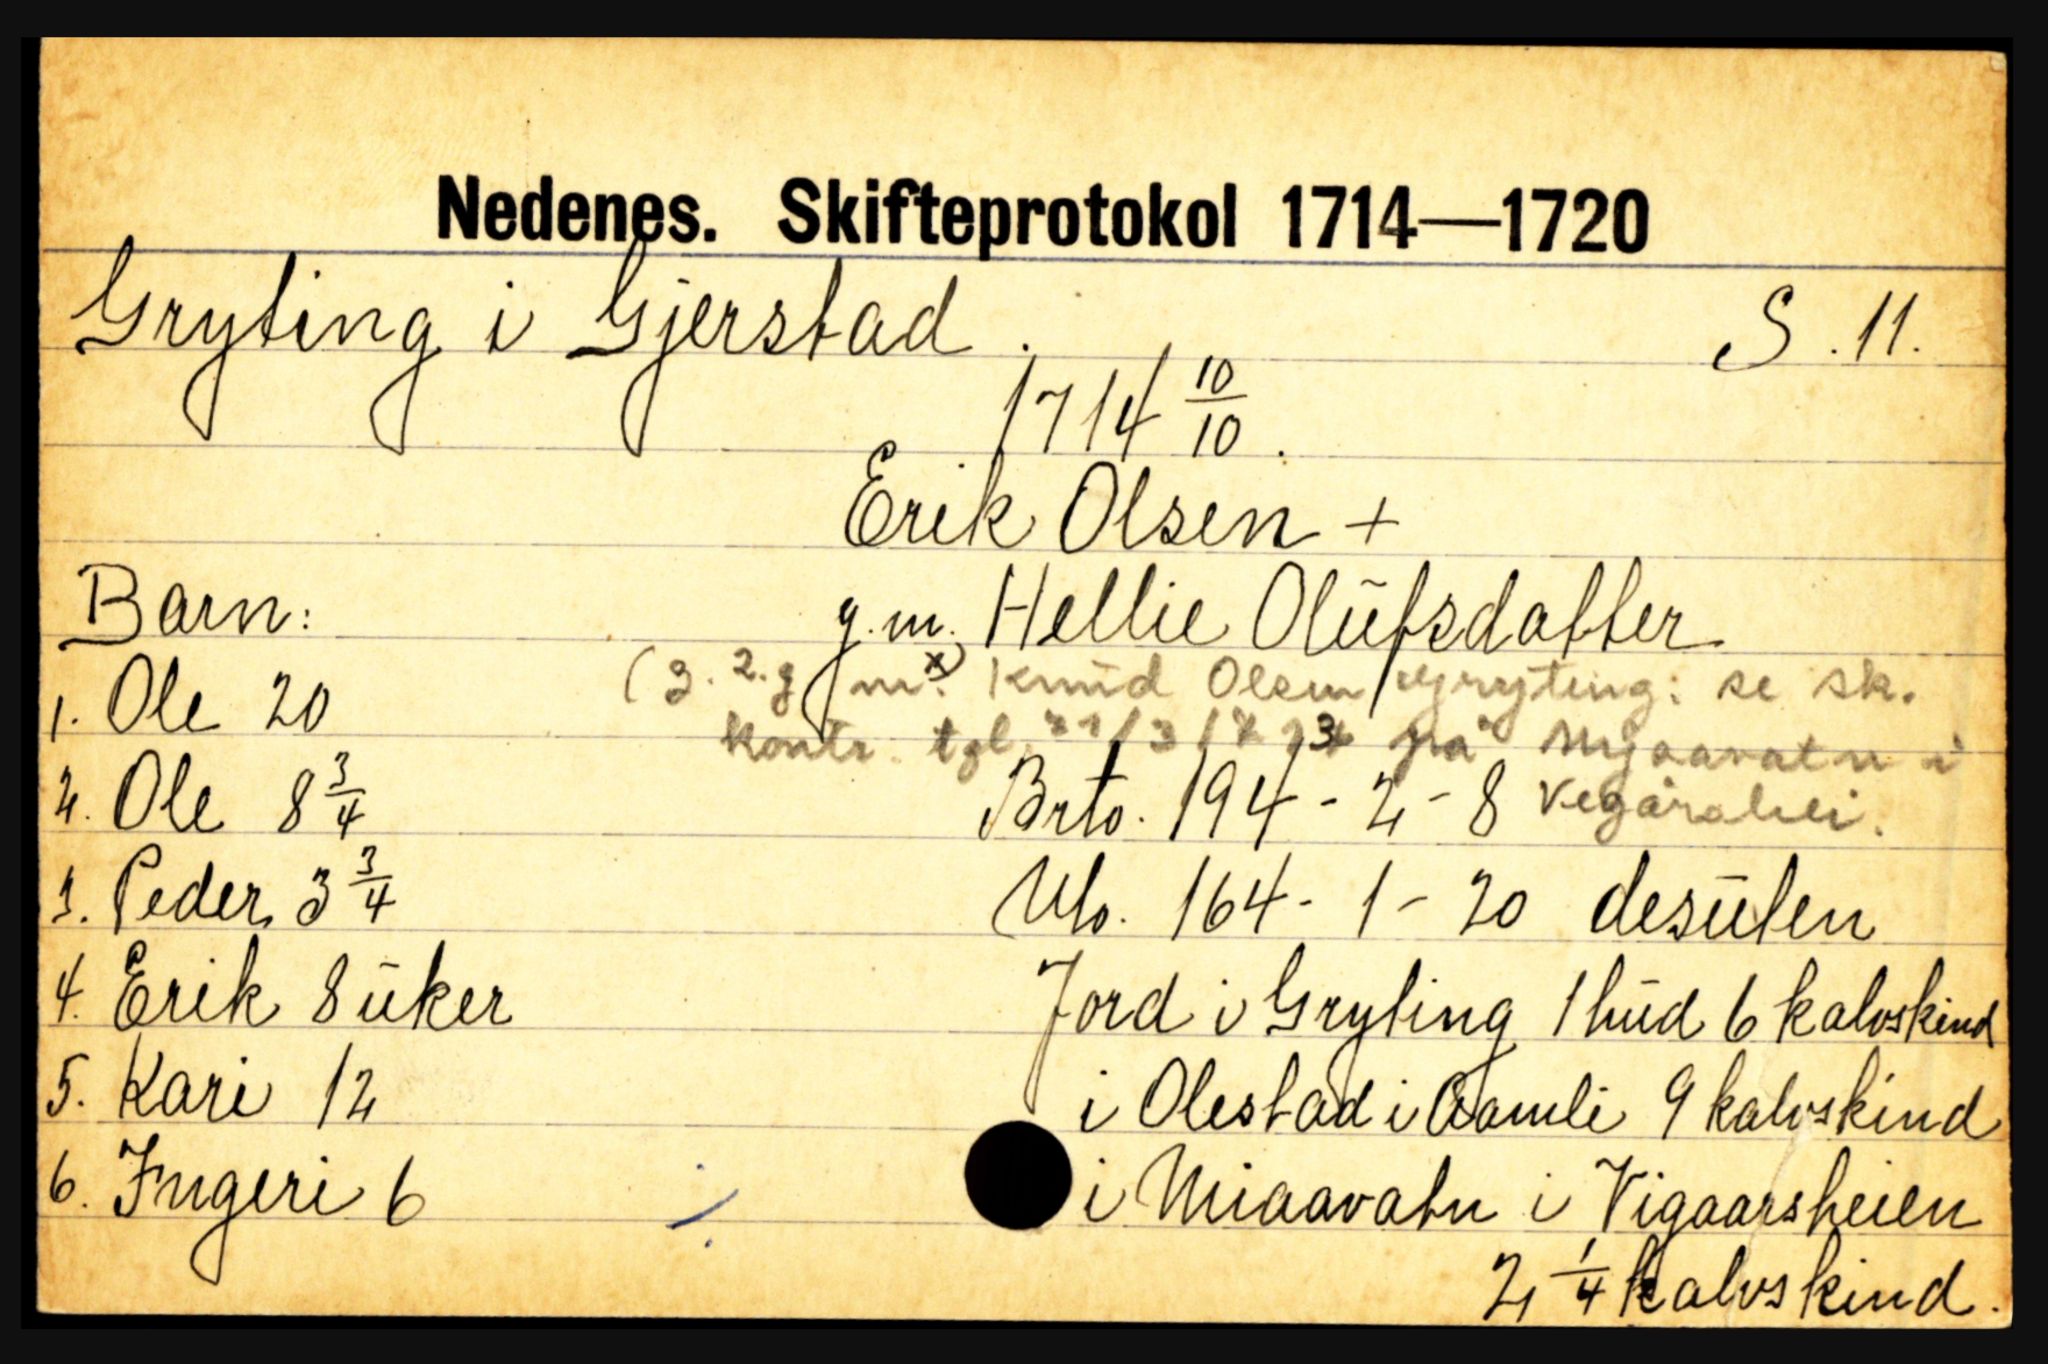 Nedenes. Skifteprotokol 1714—1720
Gryting i Gjerstad. S. 11.
1714 10/10.
Erik Olsen +
Barn:
g.m. Hellie Olüfsdatter
(g. 2. g m. x) Knüd Olsen Gryting: se sk.
kontr. tgl. på Mjaavatn i
Vegårshei.
1. Ole 20
2. Ole 8 3/4
3. Peder 3 3/4
4. Erik 8 üker
5. Kari 12
6. Ingeri 6
Brto. 194 - 2 - 8
Nto. 164 - 1 - 20 desüten
Jord i Gryting 1 hüd 6 kalvskind
i Olestad i Aamli 9 kalvskind
i Miaavatn i Vigaarsheien
2 1/4 kalvskind.